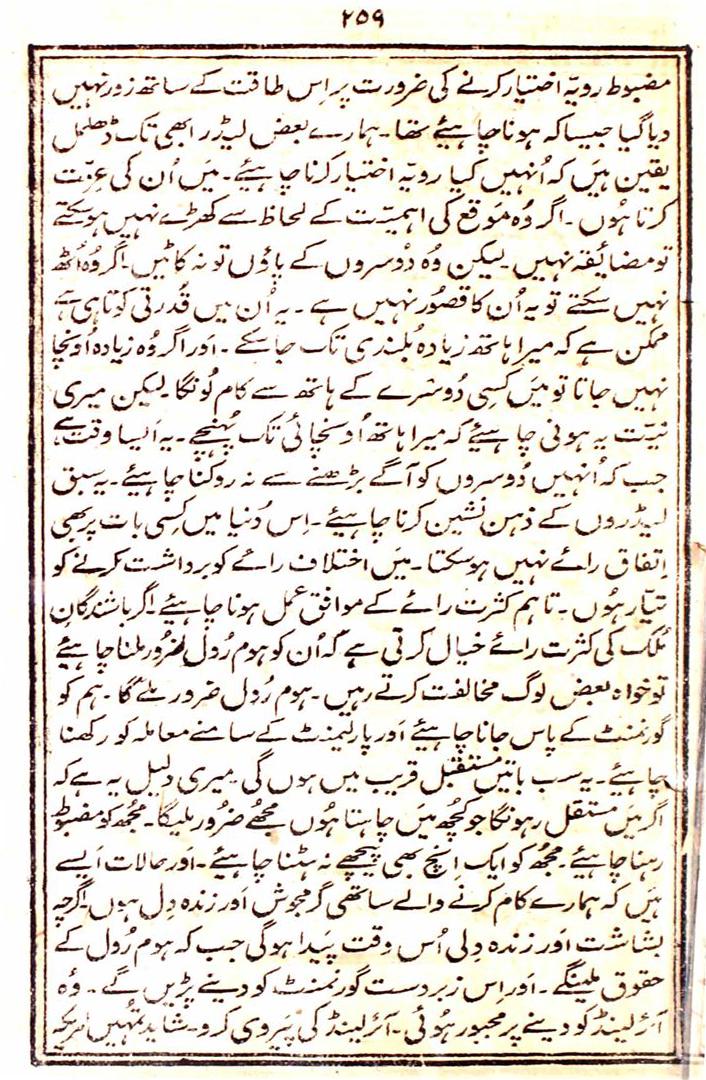 ۲۵۹
مضبوط رویّہ اختیار کرنے کی ضرورت پر اِس طاقت کے ساتھ زور نہیں
دیا گیا جیسا کہ ہونا چاہیئے تھا۔ ہمارے بعض لیڈر ابھی تک ڈھلمل
یقین ہیں کہ اُنہیں کیا رویّہ اختیار کرنا چاہیئے۔ میں اُن کی عزت
کرتا ہُوں۔ اگر وُہ موقع کی اہمیّت کے لحاظ سے کھڑے نہیں ہو سکتے
تو مضائیقہ نہیں۔ لیکن وُہ دُوسروں کے پاؤں تو نہ کاٹیں۔ اگر وُہ اُٹھ
نہیں سکتے تو یہ اُن کا قصُور نہیں ہے۔ یہ اُن میں قُدرتی کوتاہی ہے
ممکن ہے کہ میرا ہاتھ زیادہ بُلندی تک جا سکے۔ اور اگر وُہ زیادہ اُونچا
نہیں جاتا تو میں کسِی دُوسرے کے ہاتھ سے کام لُونگا۔ لیکن میری
نیّت یہ ہونی چاہیئے کہ میرا ہاتھ اُونچائی تک پہُنچے۔ یہ ایسا وقت ہے
جب کہ اُنہیں دُوسروں کو آگے بڑھنے سے نہ روکنا چاہیئے۔ یہ سبق
لیڈروں کے ذہن نشین کرنا چاہیئے۔ اِس دُنیا میں کسِی بات پر بھی
اِتفاق رائے نہیں ہو سکتا۔ میں اختلاف رائے کو برداشت کرنے کو
تیّار ہُوں۔ تاہم کثرت رائے کے موافق عمل ہونا چاہیئے۔ اگر باشندگانِ
مُلک کی کثرت رائے خیال کرتی ہے کہ اُن کو ہوم رُول ضرُور ملنا چاہیئے
تو خواہ بعض لوگ مخالفت کرتے رہیں۔ ہوم رُول ضرور ملے گا۔ ہم کو
گورنمنٹ کے پاس جانا چاہیئے اور پارلیمنٹ کے سامنے معاملہ کو رکھنا
چاہیئے۔ یہ سب باتیں مستقبل قریب میں ہوں گی۔ میری دلیل یہ ہے کہ
اگر میں مستقل رہونگا جو کچُھ میں چاہتا ہُوں مجھُے ضرور ملیگا۔ مجھُ کو مضبوط
رہنا چاہیئے۔ مجھُ کو ایک اِنچ بھی پیچھے نہ ہٹنا چاہیئے۔ اور حالات ایسے
ہیں کہ ہمارے کام کرنے والے ساتھی گرمجوش اور زندہ دِل ہوں۔ اگرچہ
بشاشت اور زندہ دِلی اُس وقت پیدا ہوگی جب کہ ہوم رُول کے
حقوق ملینگے۔ اور اِس زبردست گورنمنٹ کو دینے پڑیں گے۔ وُہ
آئرلینڈ کو دینے پر مجبور ہُوئی۔ آئرلینڈ کی پیروی کرو۔ شاید تمُہیں